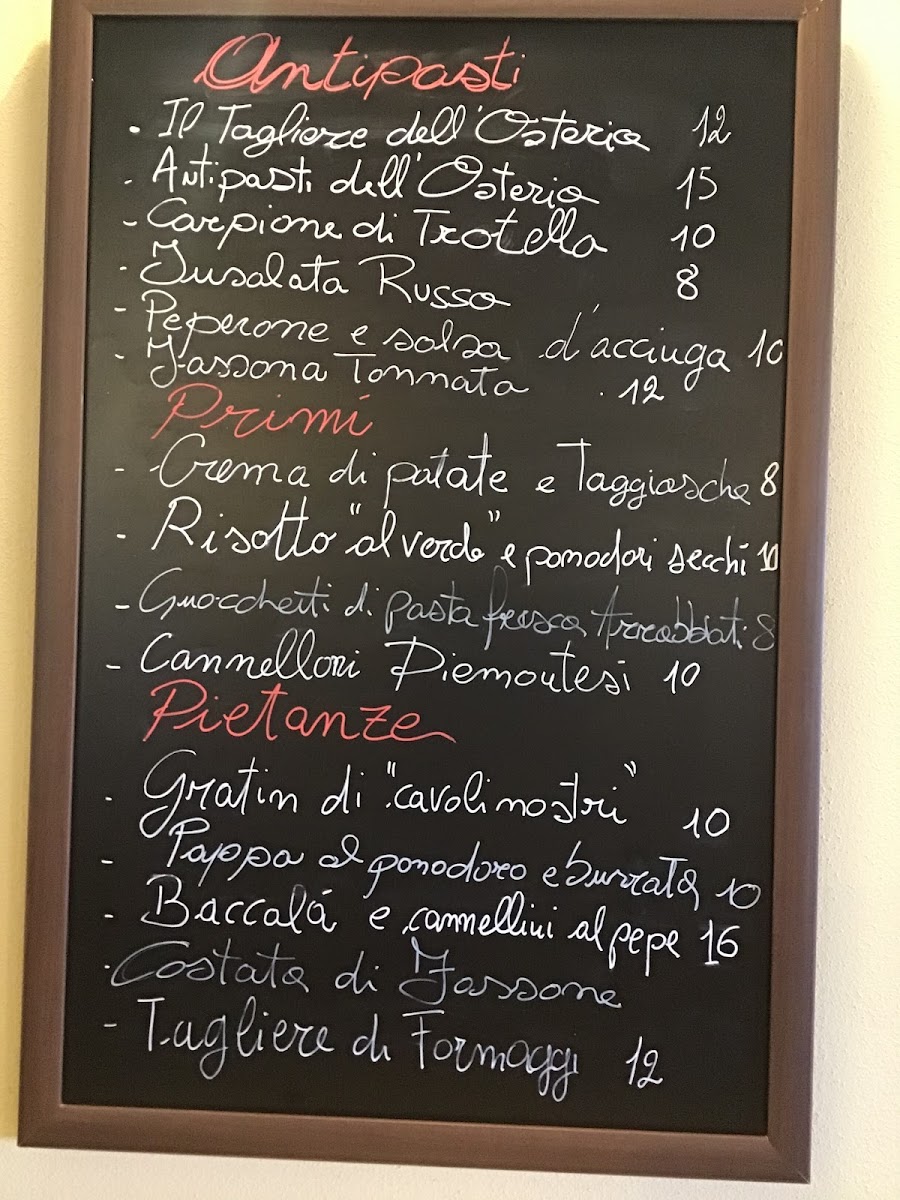 Antipasti
- Il Tagliere dell'Osteria 12
- Antipasti dell'Osteria 15
- Carpione di Trotella 10
- Insalata Russa 8
- Peperone e salsa d'acciuga 10
- Fassona Tonnata 12
Primi
- Crema di patate e Taggiasche 8
- Risotto "al verde" e pomodori secchi 10
- Gnocchetti di pasta fresca Arrabbiati 8
- Cannelloni Piemontesi 10
Pietanze
- Gratin di "cavoli nostri" 10
- Pappa al pomodoro e burrata 10
- Baccalá e cannellini al pepe 16
- Costata di Fassone
- Tagliere di Formaggi 12